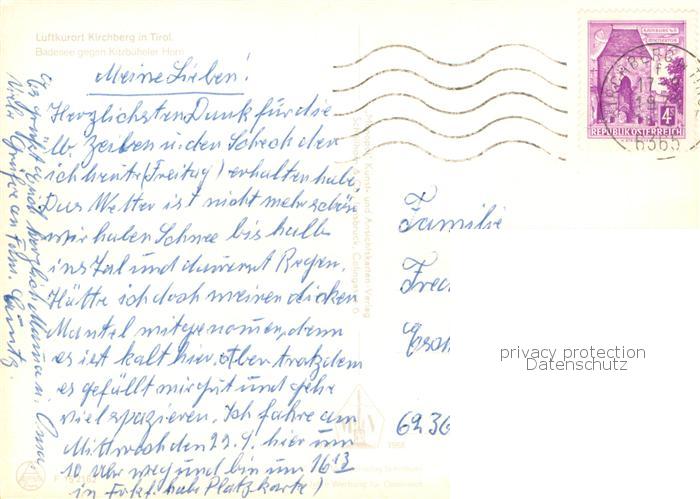 Luftkurort Kirchberg in Tirol.
Badesee gegen Kitzbüheler Horn
Meine Lieben!
Herzlichsten Dank für die
lb. Zeilen u. den Scheck den
ich heute (Freitag) erhalten habe.
Das Wetter ist nicht mehr schön
wir haben Schnee bis halb
ins Tal und dauernt Regen.
Hätte ich doch meinen dicken
Mantel mitgenomen, denn
es ist kalt hier. Aber trotzdem
es gefällt mir gut und gehe
viel spazieren. Ich fahre am
Mittwoch den 29.9. hier um
10 Uhr weg und bin um 16 13
in Fckf. habe Platzkarte)
Es grüßt Euch herzlich Mama u. Oma.
Viele Grüße an Fam.
Familie
6236
REPUBLIK ÖSTERREICH
4 S
6365
privacy protection
Datenschutz
Kunst- und Ansichtskarten-Verlag